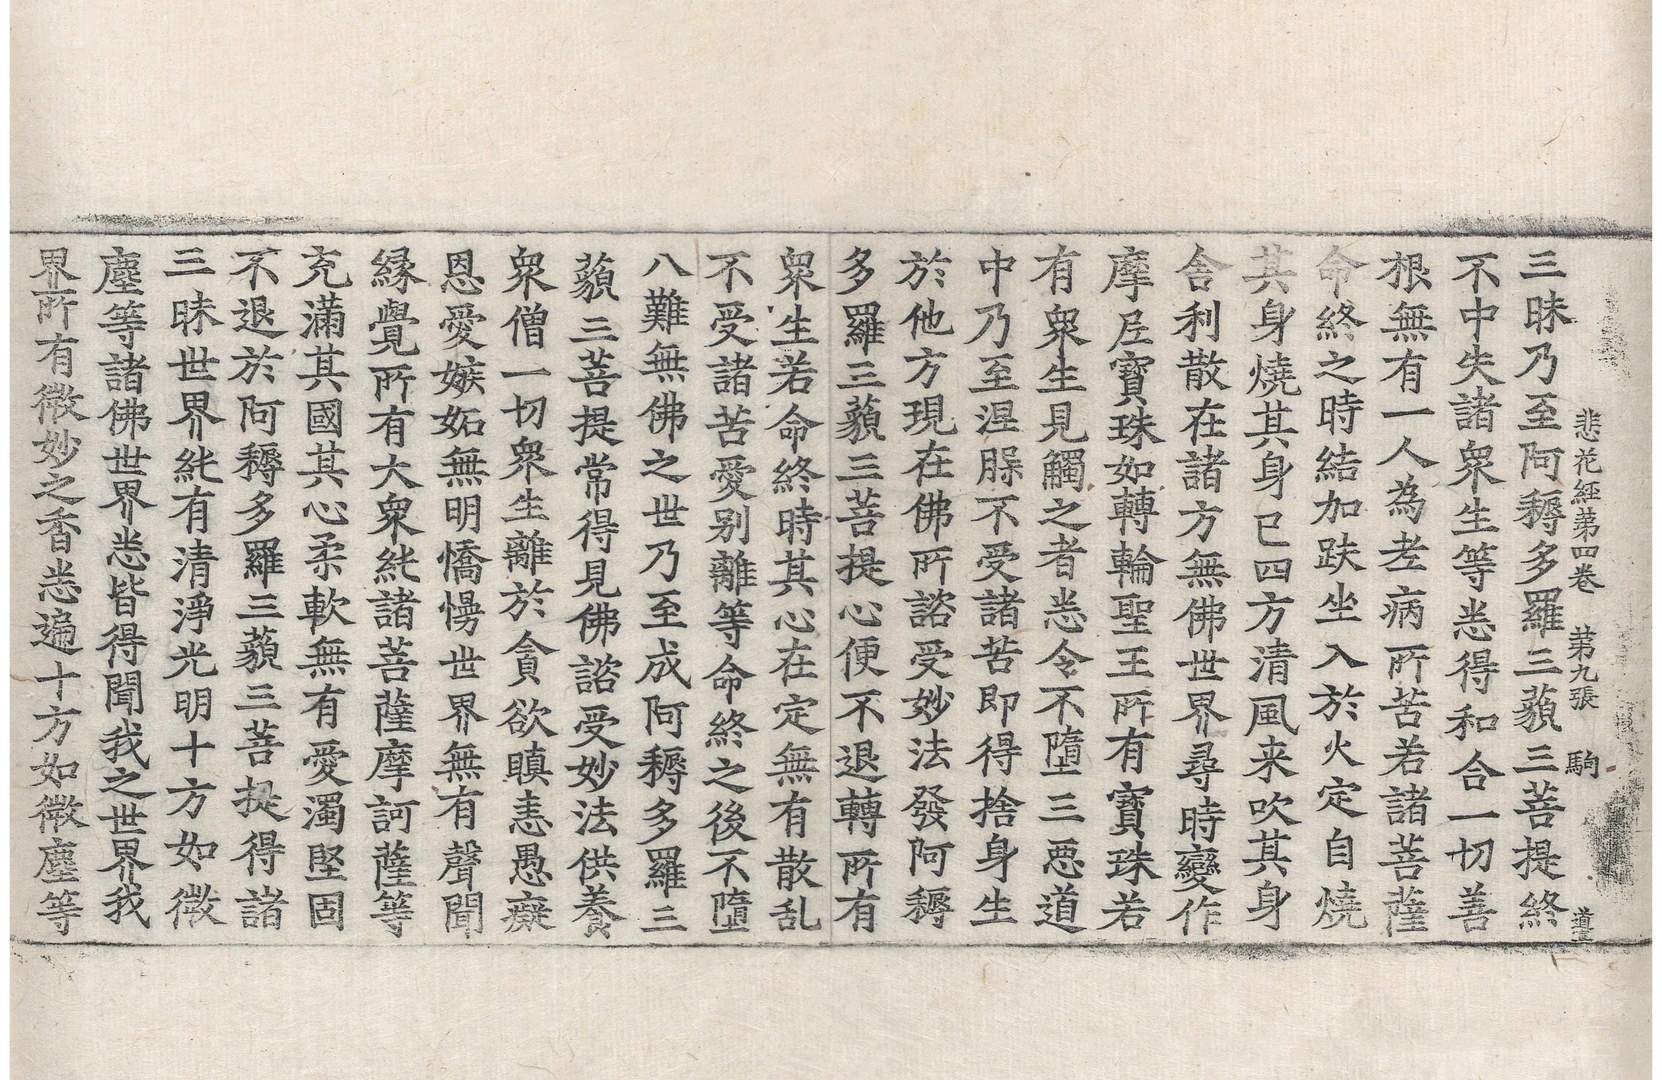 悲花経苐四巻　苐九張　駒　道
三昧乃至阿耨多羅三藐三菩提終
不中失諸衆生等悉得和合一切善
根無有一人為老病所苦若諸菩薩
命終之時結加趺坐入於火定自燒
其身燒其身已四方清風来吹其身
舍利散在諸方無佛世界尋時變作
摩尼寶珠如轉輪聖王所有寶珠若
有衆生見觸之者悉令不墮三惡道
中乃至涅槃不受諸苦即得捨身生
於他方現在佛所諮受妙法發阿耨
多羅三藐三菩提心便不退轉所有
衆生若命終時其心在定無有散乱
不受諸苦愛别離等命終之後不墮
八難無佛之世乃至成阿耨多羅三
藐三菩提常得見佛諮受妙法供養
衆僧一切衆生離於貪欲瞋恚愚癡
恩愛嫉妬無明憍慢世界無有聲聞
縁覺所有大衆純諸菩薩摩訶薩等
充滿其國其心柔軟無有愛濁堅固
不退於阿耨多羅三藐三菩提得諸
三昧世界純有清淨光明十方如微
塵等諸佛世界悉皆得聞我之世界我
界所有微妙之香悉遍十方如微塵等